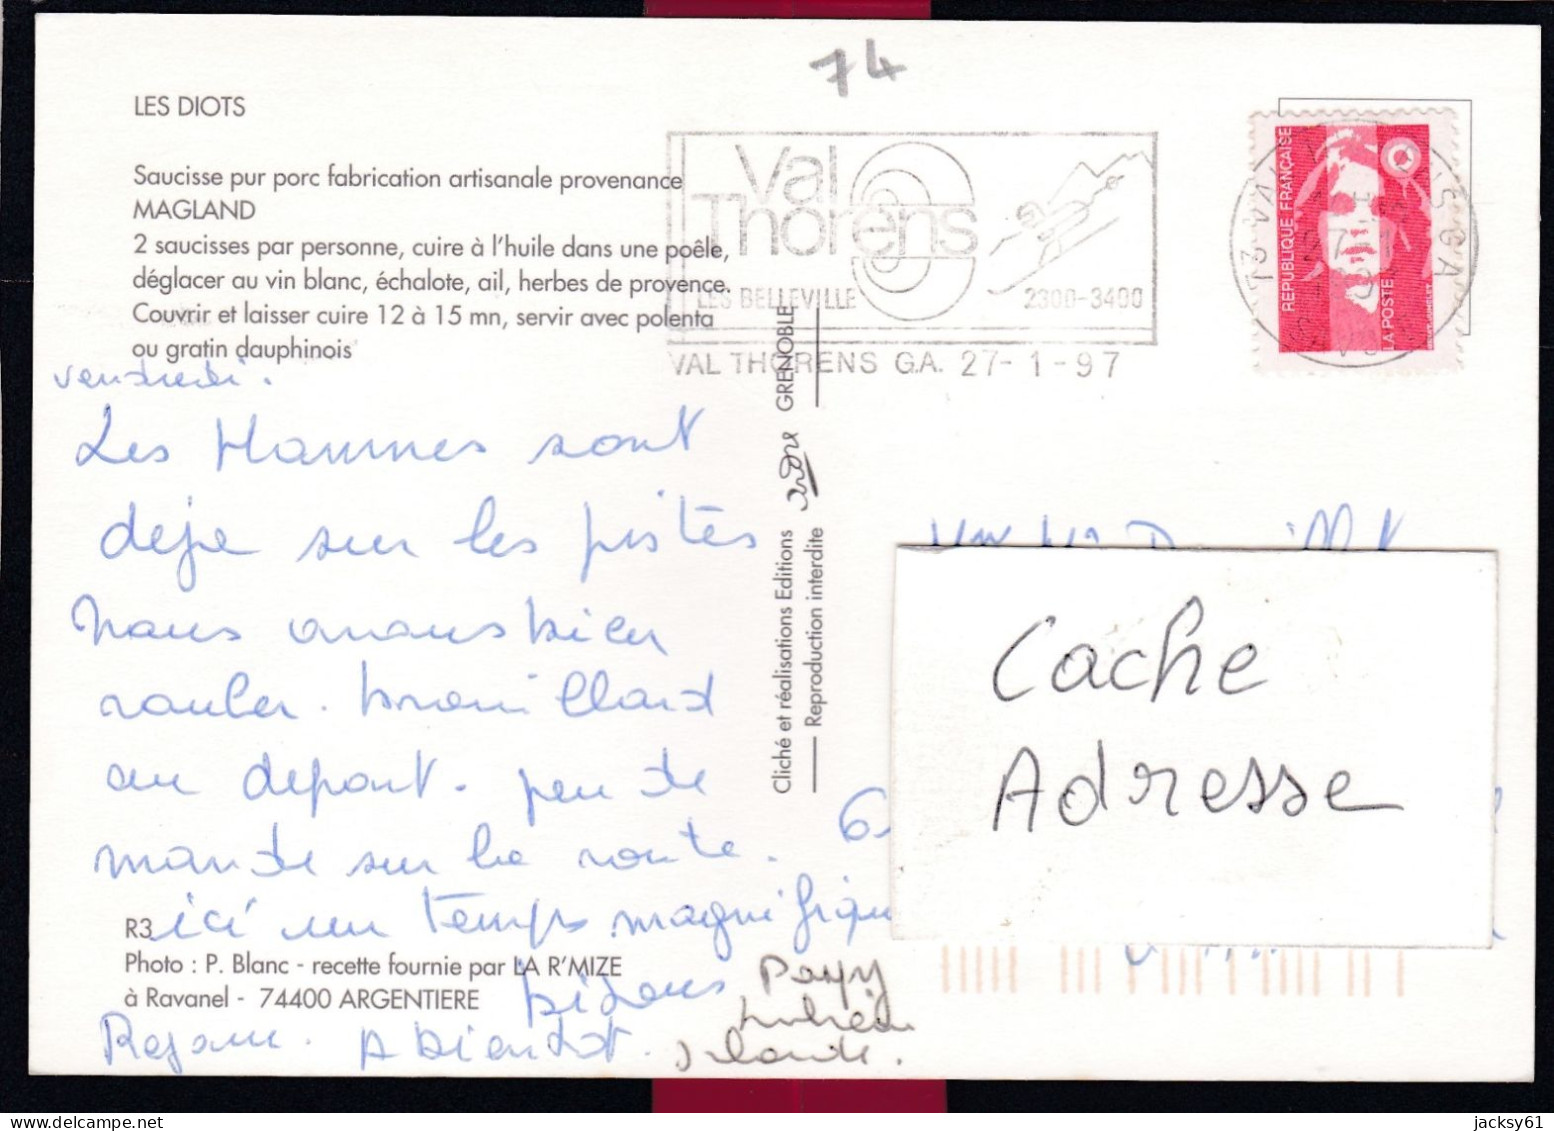 74
LES DIOTS
Saucisse pur porc fabrication artisanale provenance
MAGLAND
2 saucisses par personne, cuire à l'huile dans une poêle,
déglacer au vin blanc, échalote, ail, herbes de provence.
Couvrir et laisser cuire 12 à 15 mn, servir avec polenta
ou gratin dauphinois
Val
Thorens
LES BELLEVILLE 2300-3400
VAL THORENS G.A. 27-1-97
REPUBLIQUE FRANÇAISE
LA POSTE
vendredi.
Les Hommes sont
deja sur les pistes
Nous avons bien
rouler. brouillard
au depart. peu de
monde sur la route.
ici un temps magnifique
bisous
Rejane. A bientot.
Papy
Orlande.
Cliché et réalisations Editions GRENOBLE
Reproduction interdite
Cache
Adresse
R3
Photo : P. Blanc - recette fournie par LA R'MIZE
à Ravanel - 74400 ARGENTIERE
jacksy61